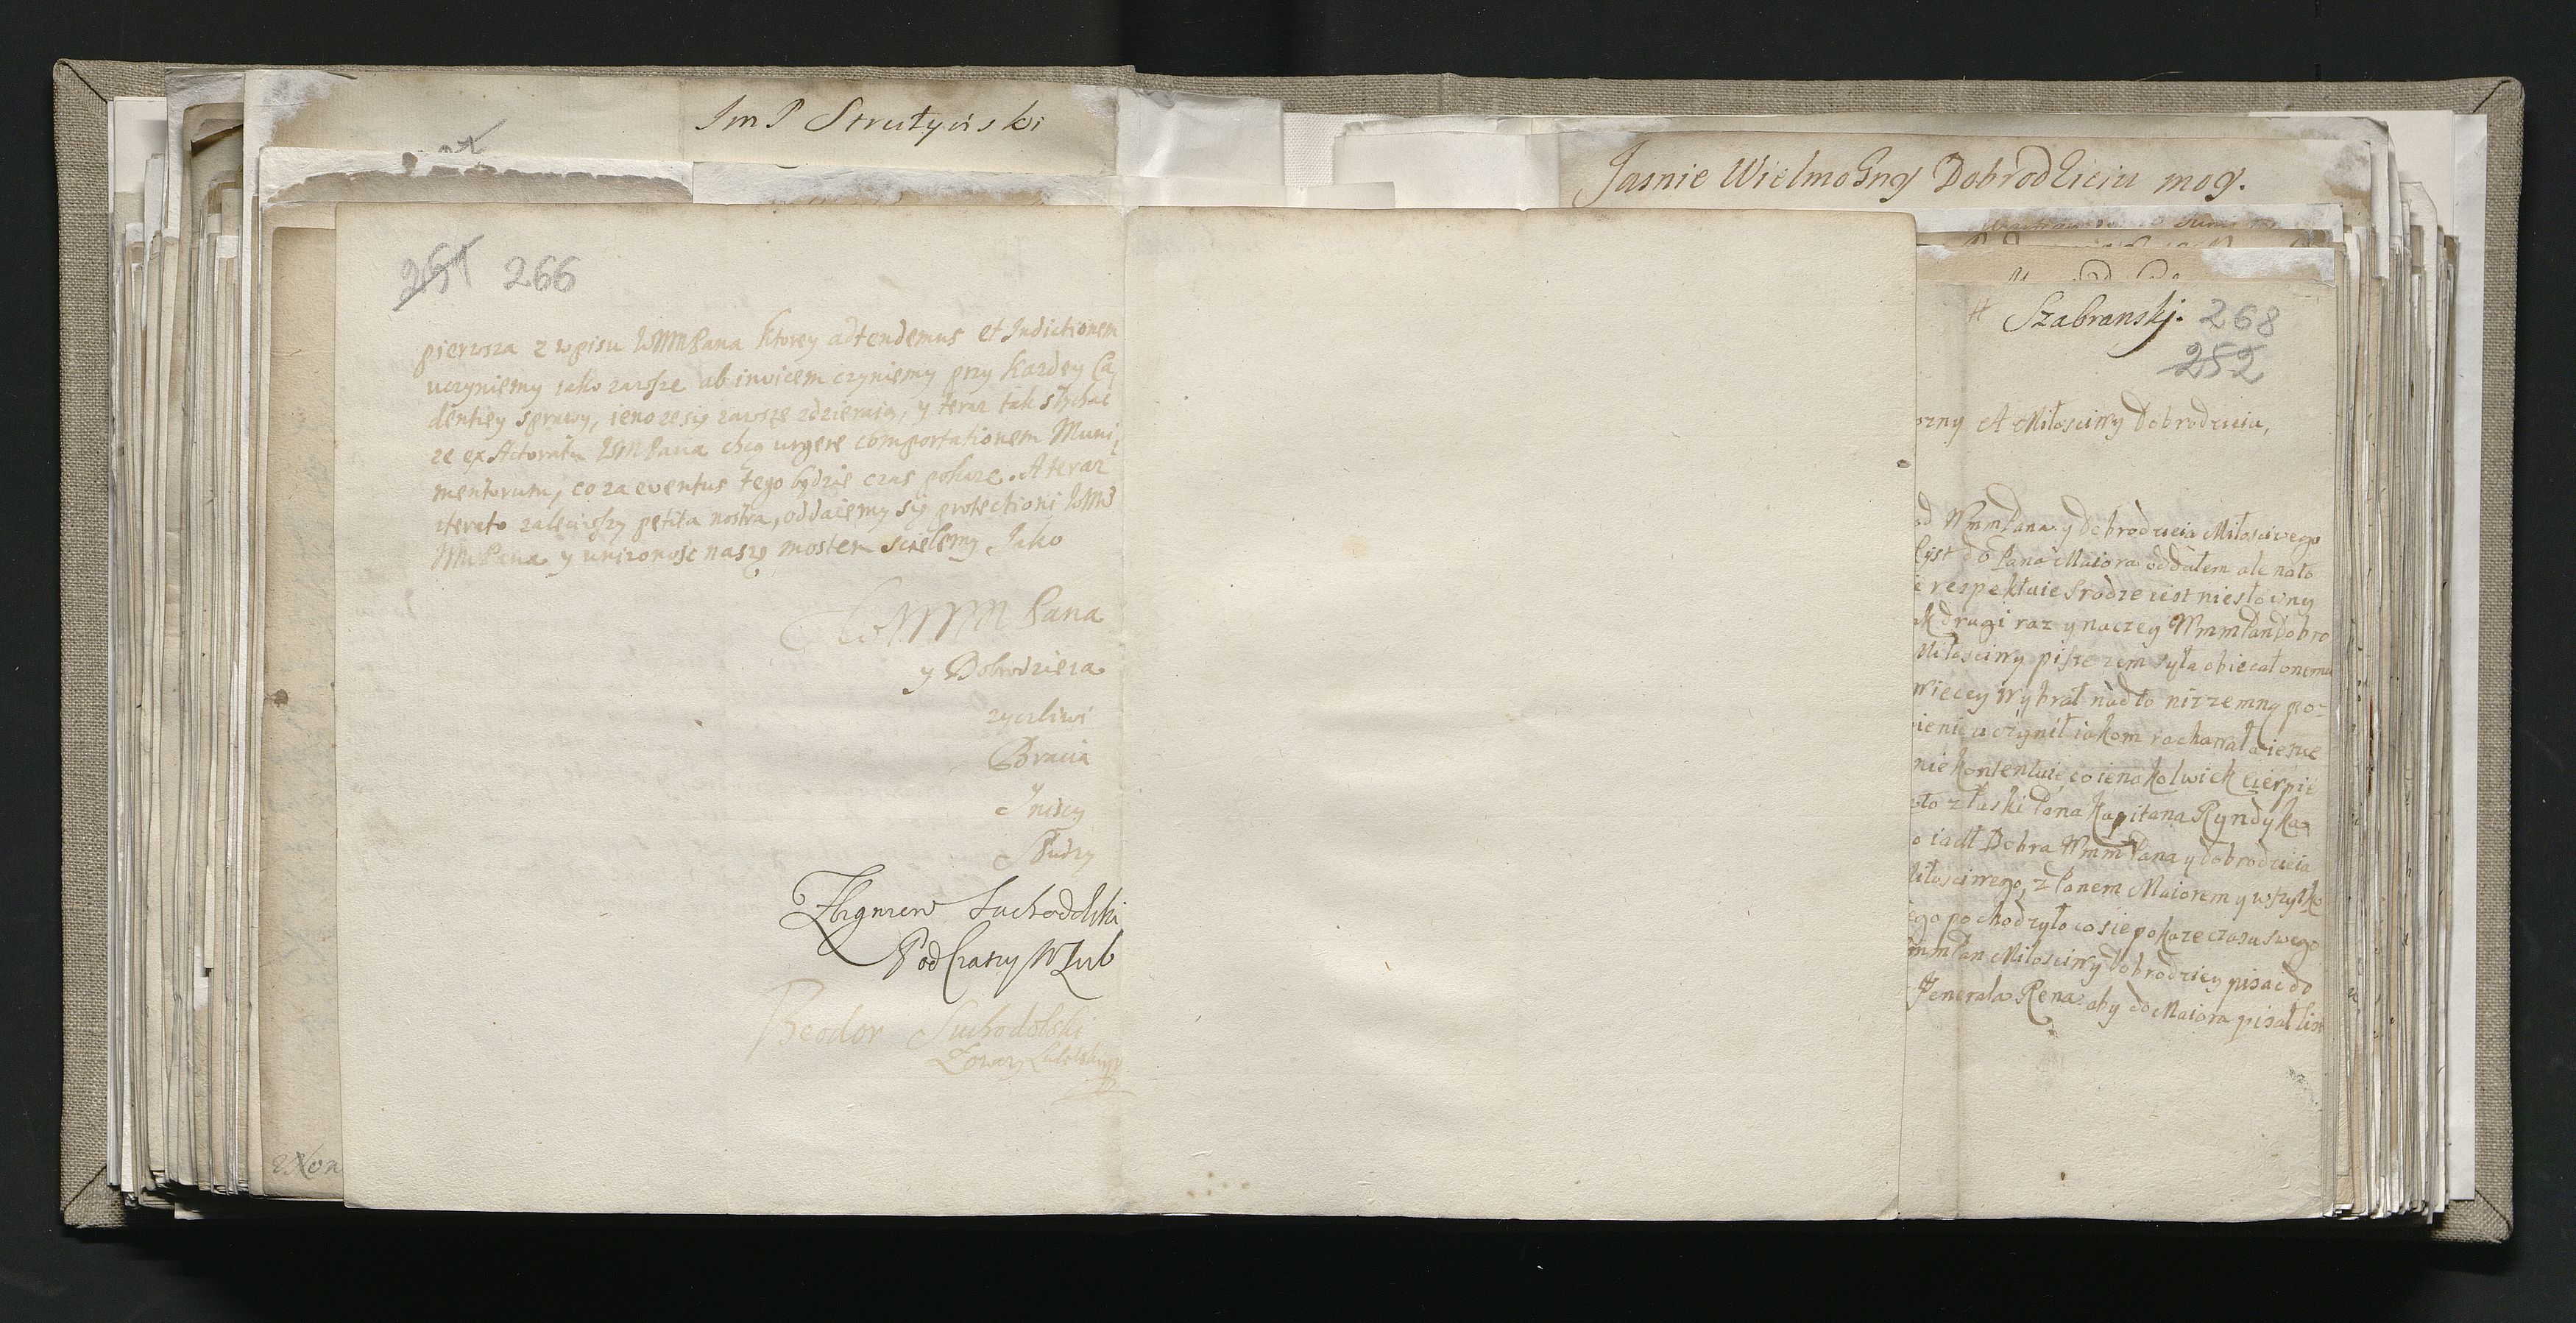 Jm P Strutyński
Jasnie Wielmożny Dobrodzieiu mog.
251 266
pierwsza z wpisu WMMPana ktorey adtendemus et Indictionem
uczyniemy iako zawsze ab invicem czyniemy przy kazdey Ca,
dentiey sprawy, ieno ze się zawsze zdzieraią, y teraz tak słychac
ze ex Actoratu WMPana chcą urgere comportationem Muni,
mentorum, co za eventus tego będzie czas pokaze. A teraz
iterato zaleciwszy petita nostra, oddaiemy się protectioni WM
MPana y unizonosc naszę mostem scielemy Jako
WMMM Pana
y Dobrodzieia
zyczliwi
Bracia
y
Słudzy
Zbigniew Suchodolski
PodCzaszy W Lub
Teodor Suchodolski
Łowczy
Szabranskj. 268
252
A Miłosciwy Dobrodzieia,
WmmPana y Dobrodzieia Miłosciwego
list do Pana Maiora oddałem ale nato
respektuie srodze iest niesłowny
drugi raz ynaczey WmmPan Dobro
Miłosciwy pisze zem syła obiecał onemu
więcey wybrał nadto nizzemną po=
uczynił iakom rachował ieszcze
niekontentuie co ieno kolwiek cierpie
z łaski Pana Kapitana Ryndyka
iadł Dobra WmmPana y dobrodzieia
Miłosciwego, z Panem Maiorem y wszytko
pochodzyło co sie pokaze czasu swego
mmPan Miłosciwy Dobrodziey pisac do
Jenerała Rena aby do Maiora pisał list